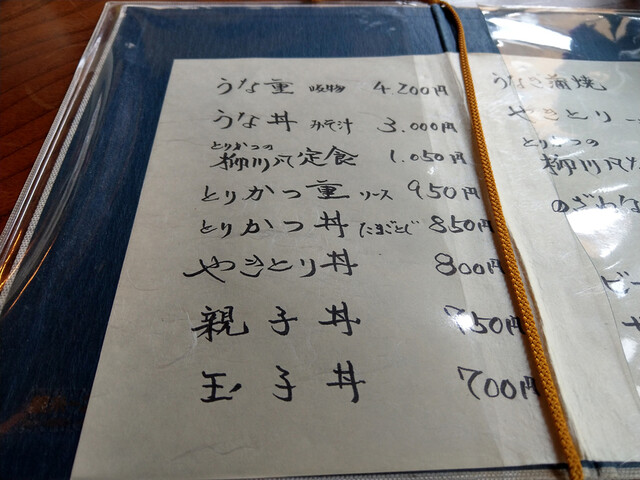 うな重 吸物 4.200円
うな丼 みそ汁 3.000円
とりかつの
柳川風定食 1.050円
とりかつ重 ソース 950円
とりかつ丼 たまごとじ 850円
やきとり丼 800円
親子丼 750円
玉子丼 700円
うなぎ蒲焼
やきとり
とりかつの
柳川風